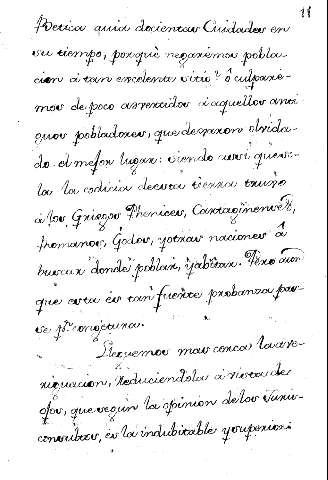 11
Betica auia docientas Ciudades en
su tiempo, porquè negarèmos pobla-
cion à tan excelente sitio? ò culparè-
mos de poco advertidos à aquellos anti
guos pobladores, que dexaron olvida-
do el mejor lugar: siendo assi que so-
la la codicia de esta tierra truxo
à los Griegos Phenices, Cartaginenses,
Romanos, Godos, y otras naciones à
buscar donde poblar, y abitar. Pero aun
que esta es tan fuerte probanza pas-
se pr. conjetura.
Lleguemos mas cerca la ave-
riguacion, reduciendola à vista de
ojos, que segun la opinion de los Juris-
consultos, es la indubitable y superior: